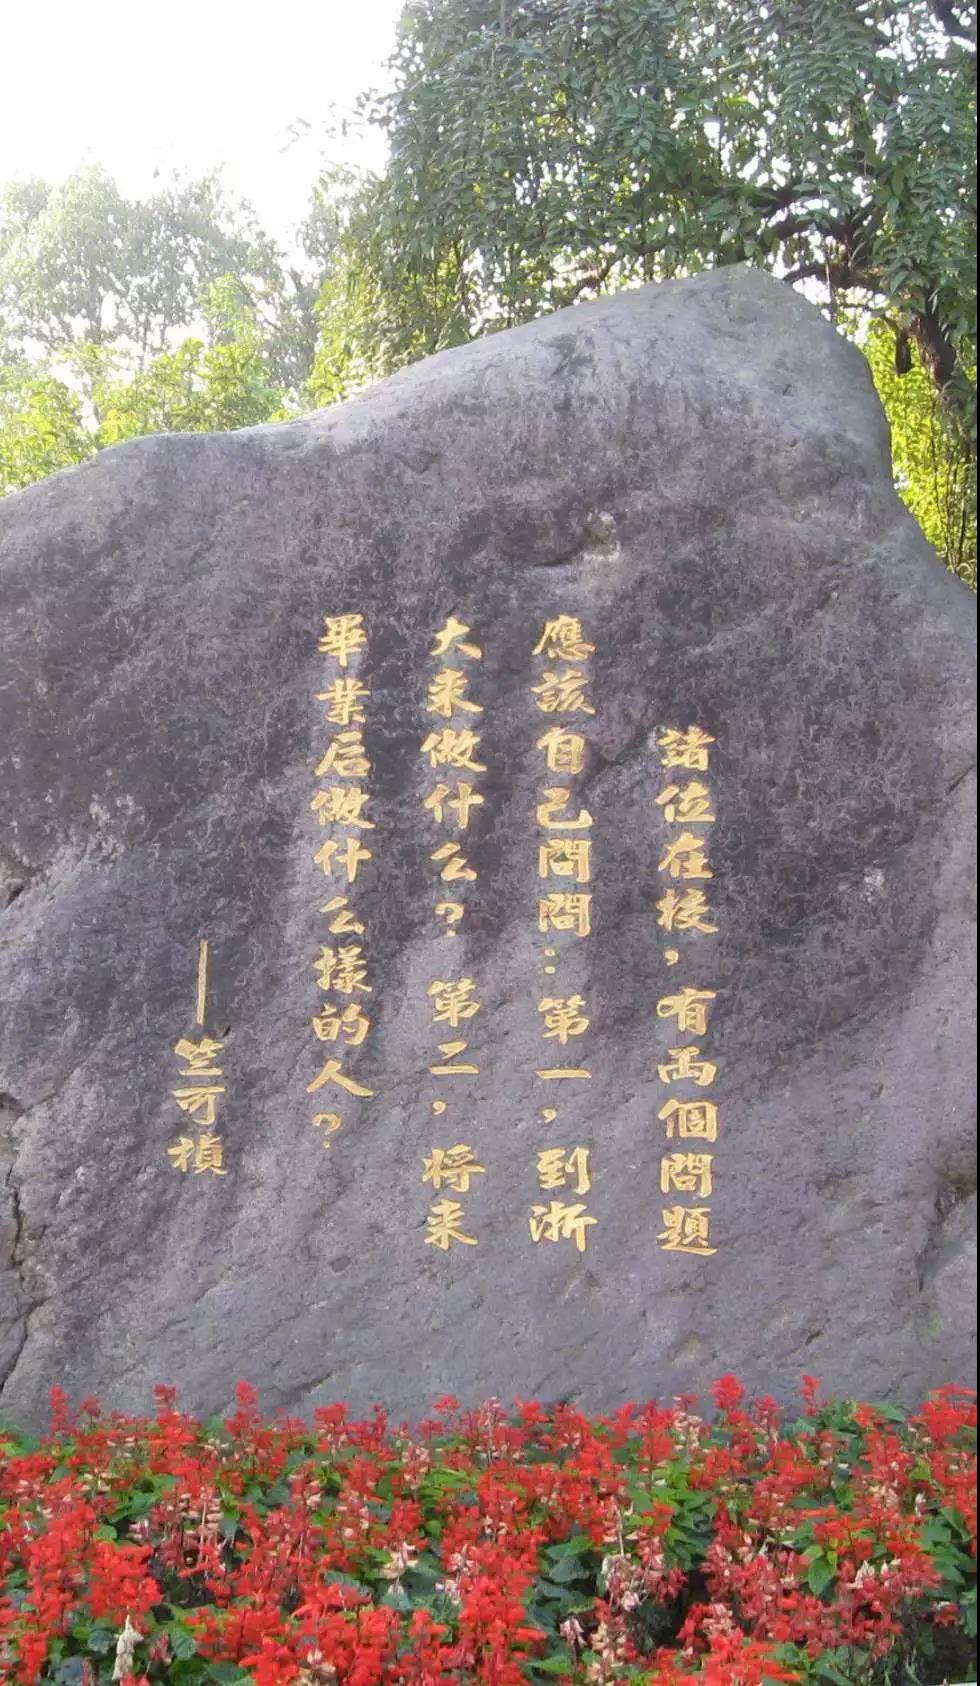 諸位在校，有兩個問題
應該自己問問：第一，到浙
大来做什么？第二，将来
畢業后做什么樣的人？
——竺可楨